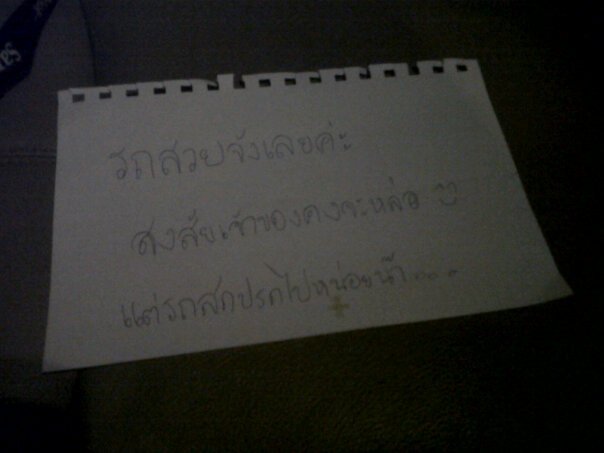 รถสวยจังเลยค่ะ
สงสัยเจ้าของคงจะหล่อ
แต่รถสกปรกไปหน่อยน๊า....